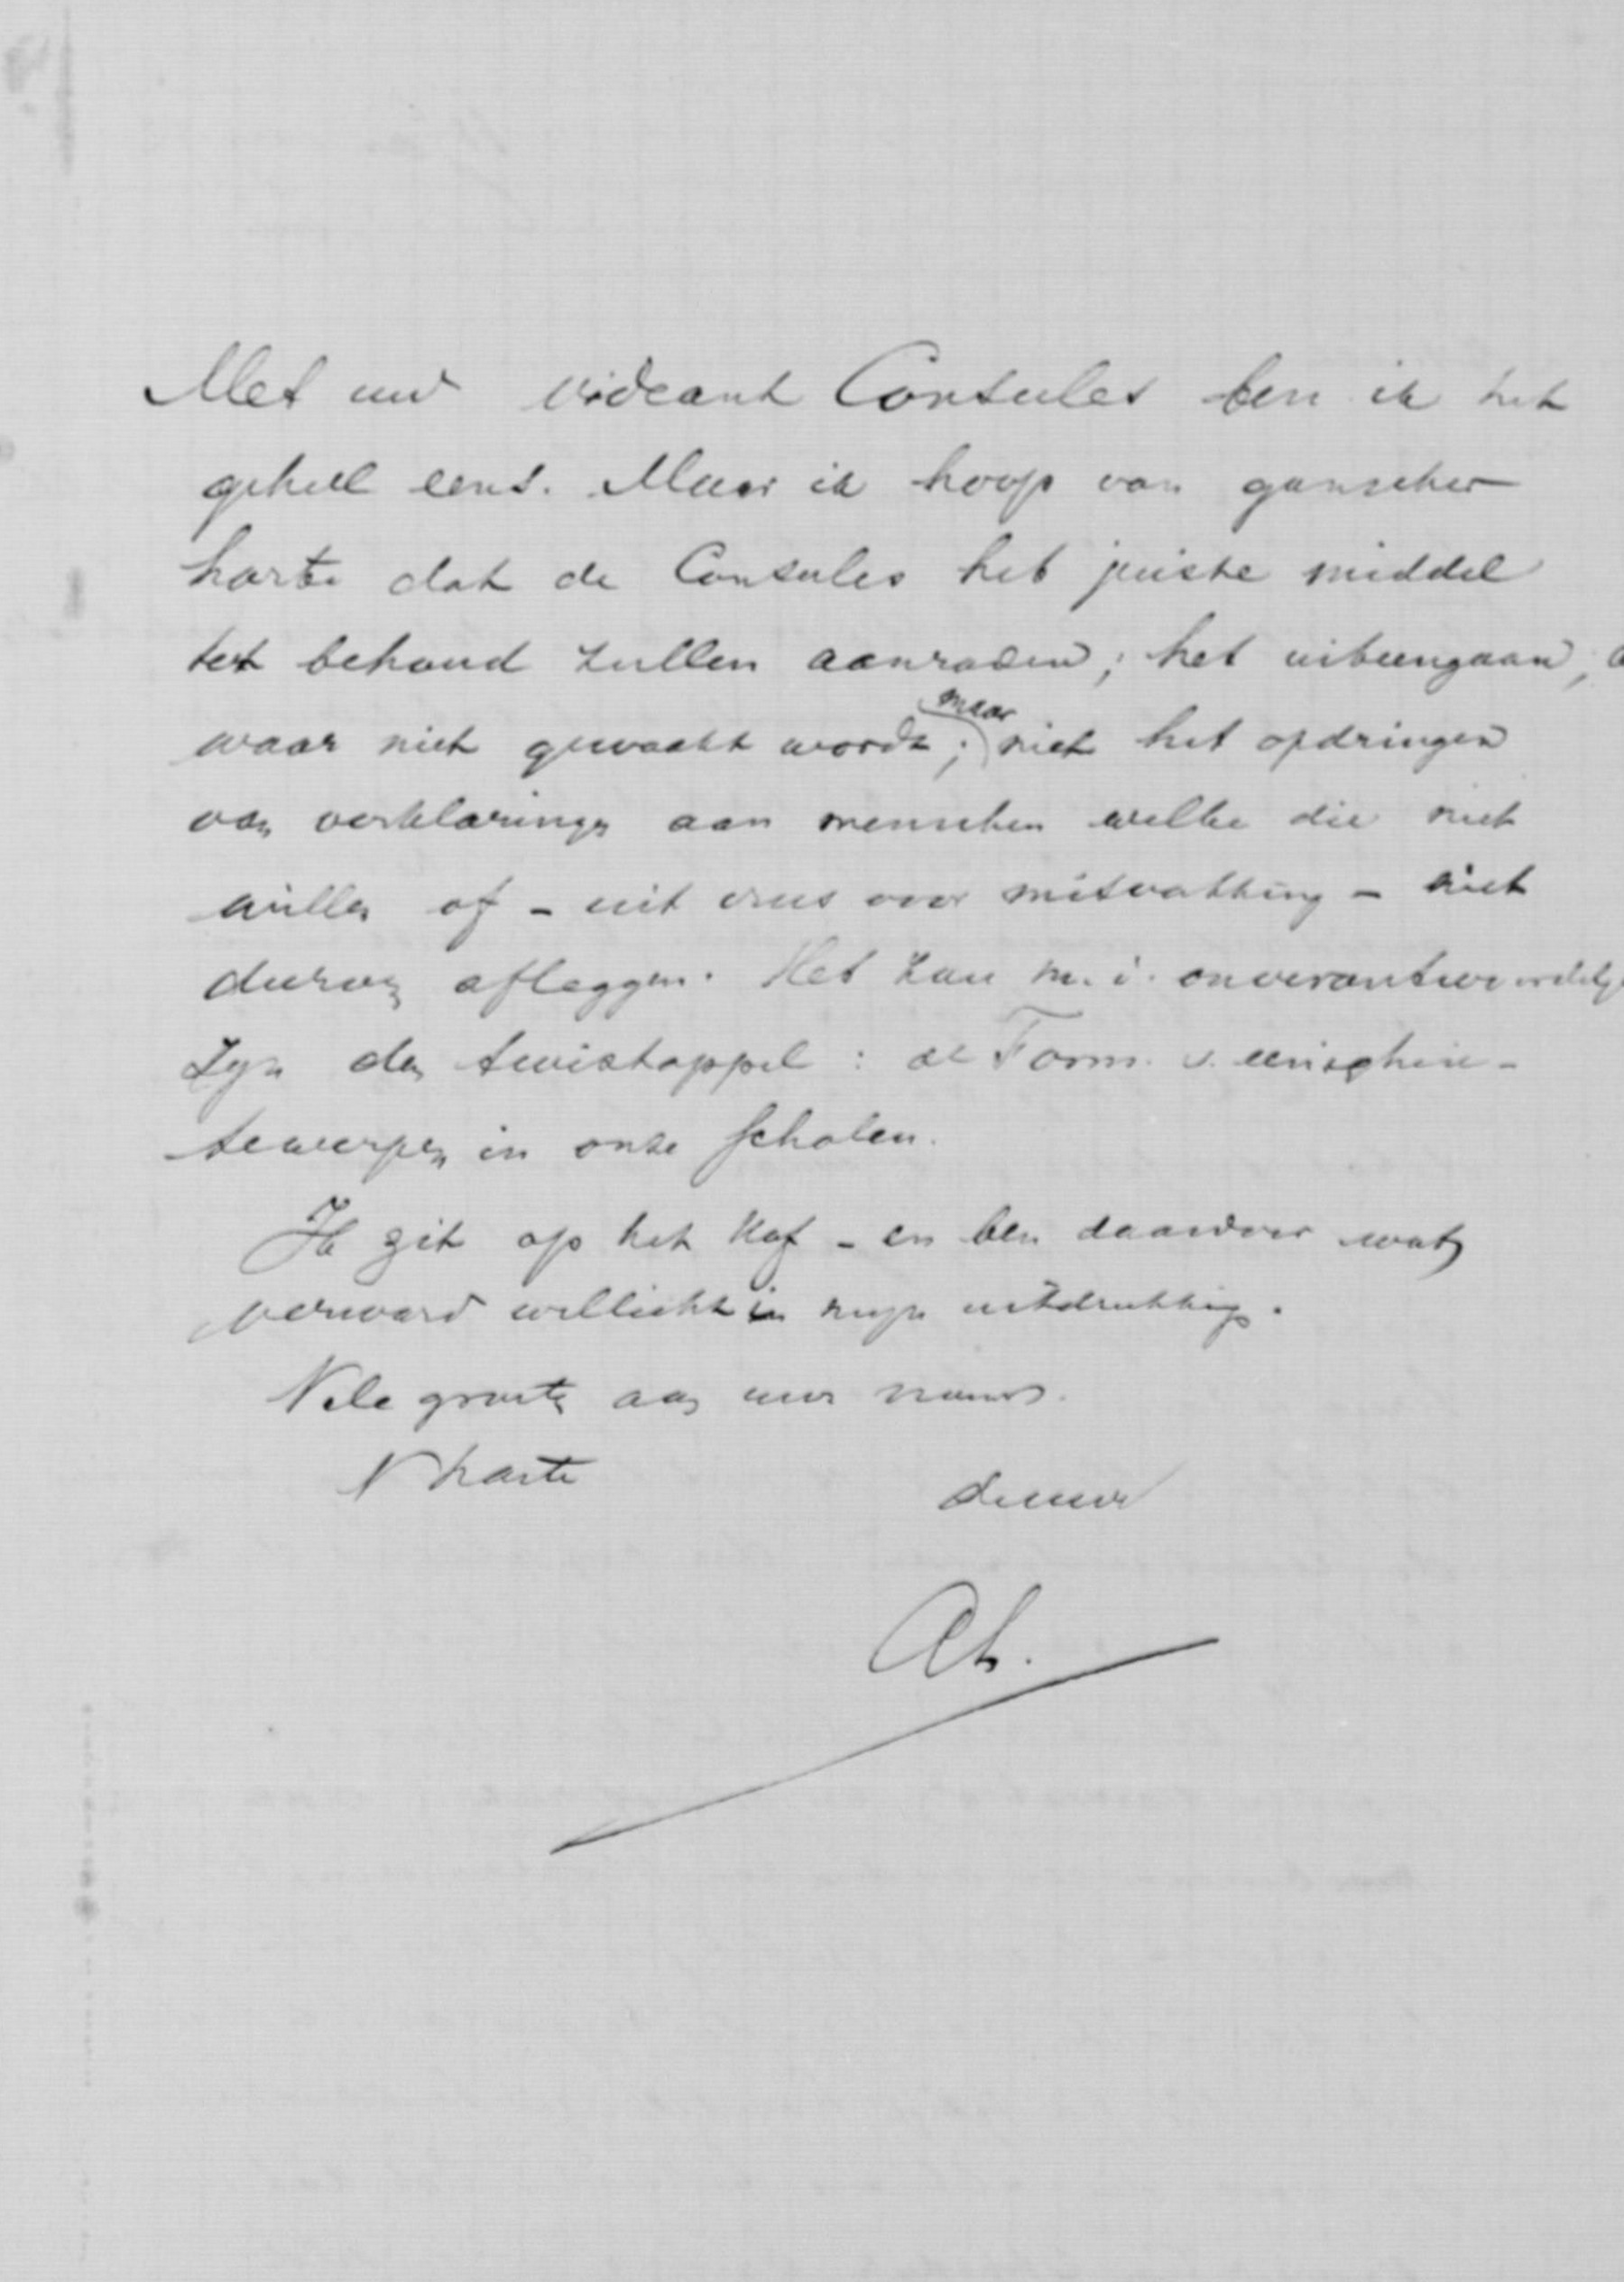 Met uw videant Consules ben ik het
geheel eens. Maar ik hoop van ganscher
harte dat de Consules het juiste middel
tot behoud zullen aanraden; het uiteengaan,
waar niet gewaakt wordt; maar niet het opdringen
van verklaringen aan menschen welke die niet
willen of - uit vrees voor misvatting - niet
durven afleggen. Het zou m.i. onverantwoordelijk
zijn den twistappel: de Form. v. eenigheid
te werpen in onze scholen.
Ik zit op het Hof - en ben daardoor wat
verward wellicht in mijn uitdrukking.
Vele groeten aan uw vrouw.
t harte
de uwe